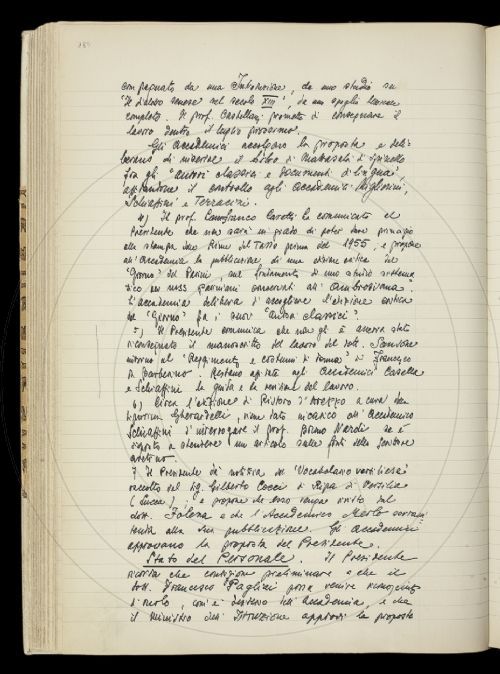 compagnato da una Introduzione, da uno studio su
"Il dialetto senese nel secolo XIII", da uno spoglio lessicale
completo. Il prof. Castellani promette di consegnare il
lavoro dentro il luglio prossimo.
Gli Accademici accolgono la proposta e deli-
berano di inserire il Libro di Mattasalà di Spinello
fra gli "Autori classici e documenti di lingua",
affidandone il controllo agli Accademici Migliorini,
Schiaffini e Terracini.
4) Il prof. Lanfranco Caretti ha comunicato al
Presidente che non sarà in grado di poter dare principio
alla stampa delle Rime del Tasso prima del 1955, e propone
all'Accademia la pubblicazione di una edizione critica del
"Giorno" del Parini, sul fondamento di uno studio sistema-
tico dei mss. pariniani conservati all'Ambrosiana.
L'Accademia delibera di accogliere l'edizione critica
del "Giorno" fra i suoi "Autori classici".
5) Il Presidente comunica che non gli è ancora stato
riconsegnato il manoscritto del lavoro del dott. Sansone
intorno al "Reggimento e costumi di donna" di Francesco
da Barberino. Restano affidate agli Accademici Casella
e Schiaffini la guida e la revisione del lavoro.
6) Circa l'edizione di Ristoro d'Arezzo a cura della
Gherardelli, viene dato incarico all'Accademico
Schiaffini d'interrogare il prof. Bruno Nardi se è
disposto a stendere un articolo sulle fonti dello scrittore
aretino.
7. Il Presidente dà notizia del "Vocabolario versiliese"
raccolto dal sig. Gilberto Cocci di Ripa di Versilia
(Lucca), e propone che esso venga rivisto dal
dott. Folena e che l'Accademico Merlo sovrain-
tenda alla sua pubblicazione. Gli Accademici
approvano la proposta del Presidente.
Stato del Personale. Il Presidente
ricorda che condizione preliminare a che il
dott. Francesco Pagliai possa venire
di ruolo, com'è desiderio dell'Accademia, è che
il Ministro della Istruzione approvi la proposta